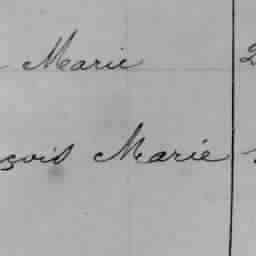 Marie 2
çois Marie